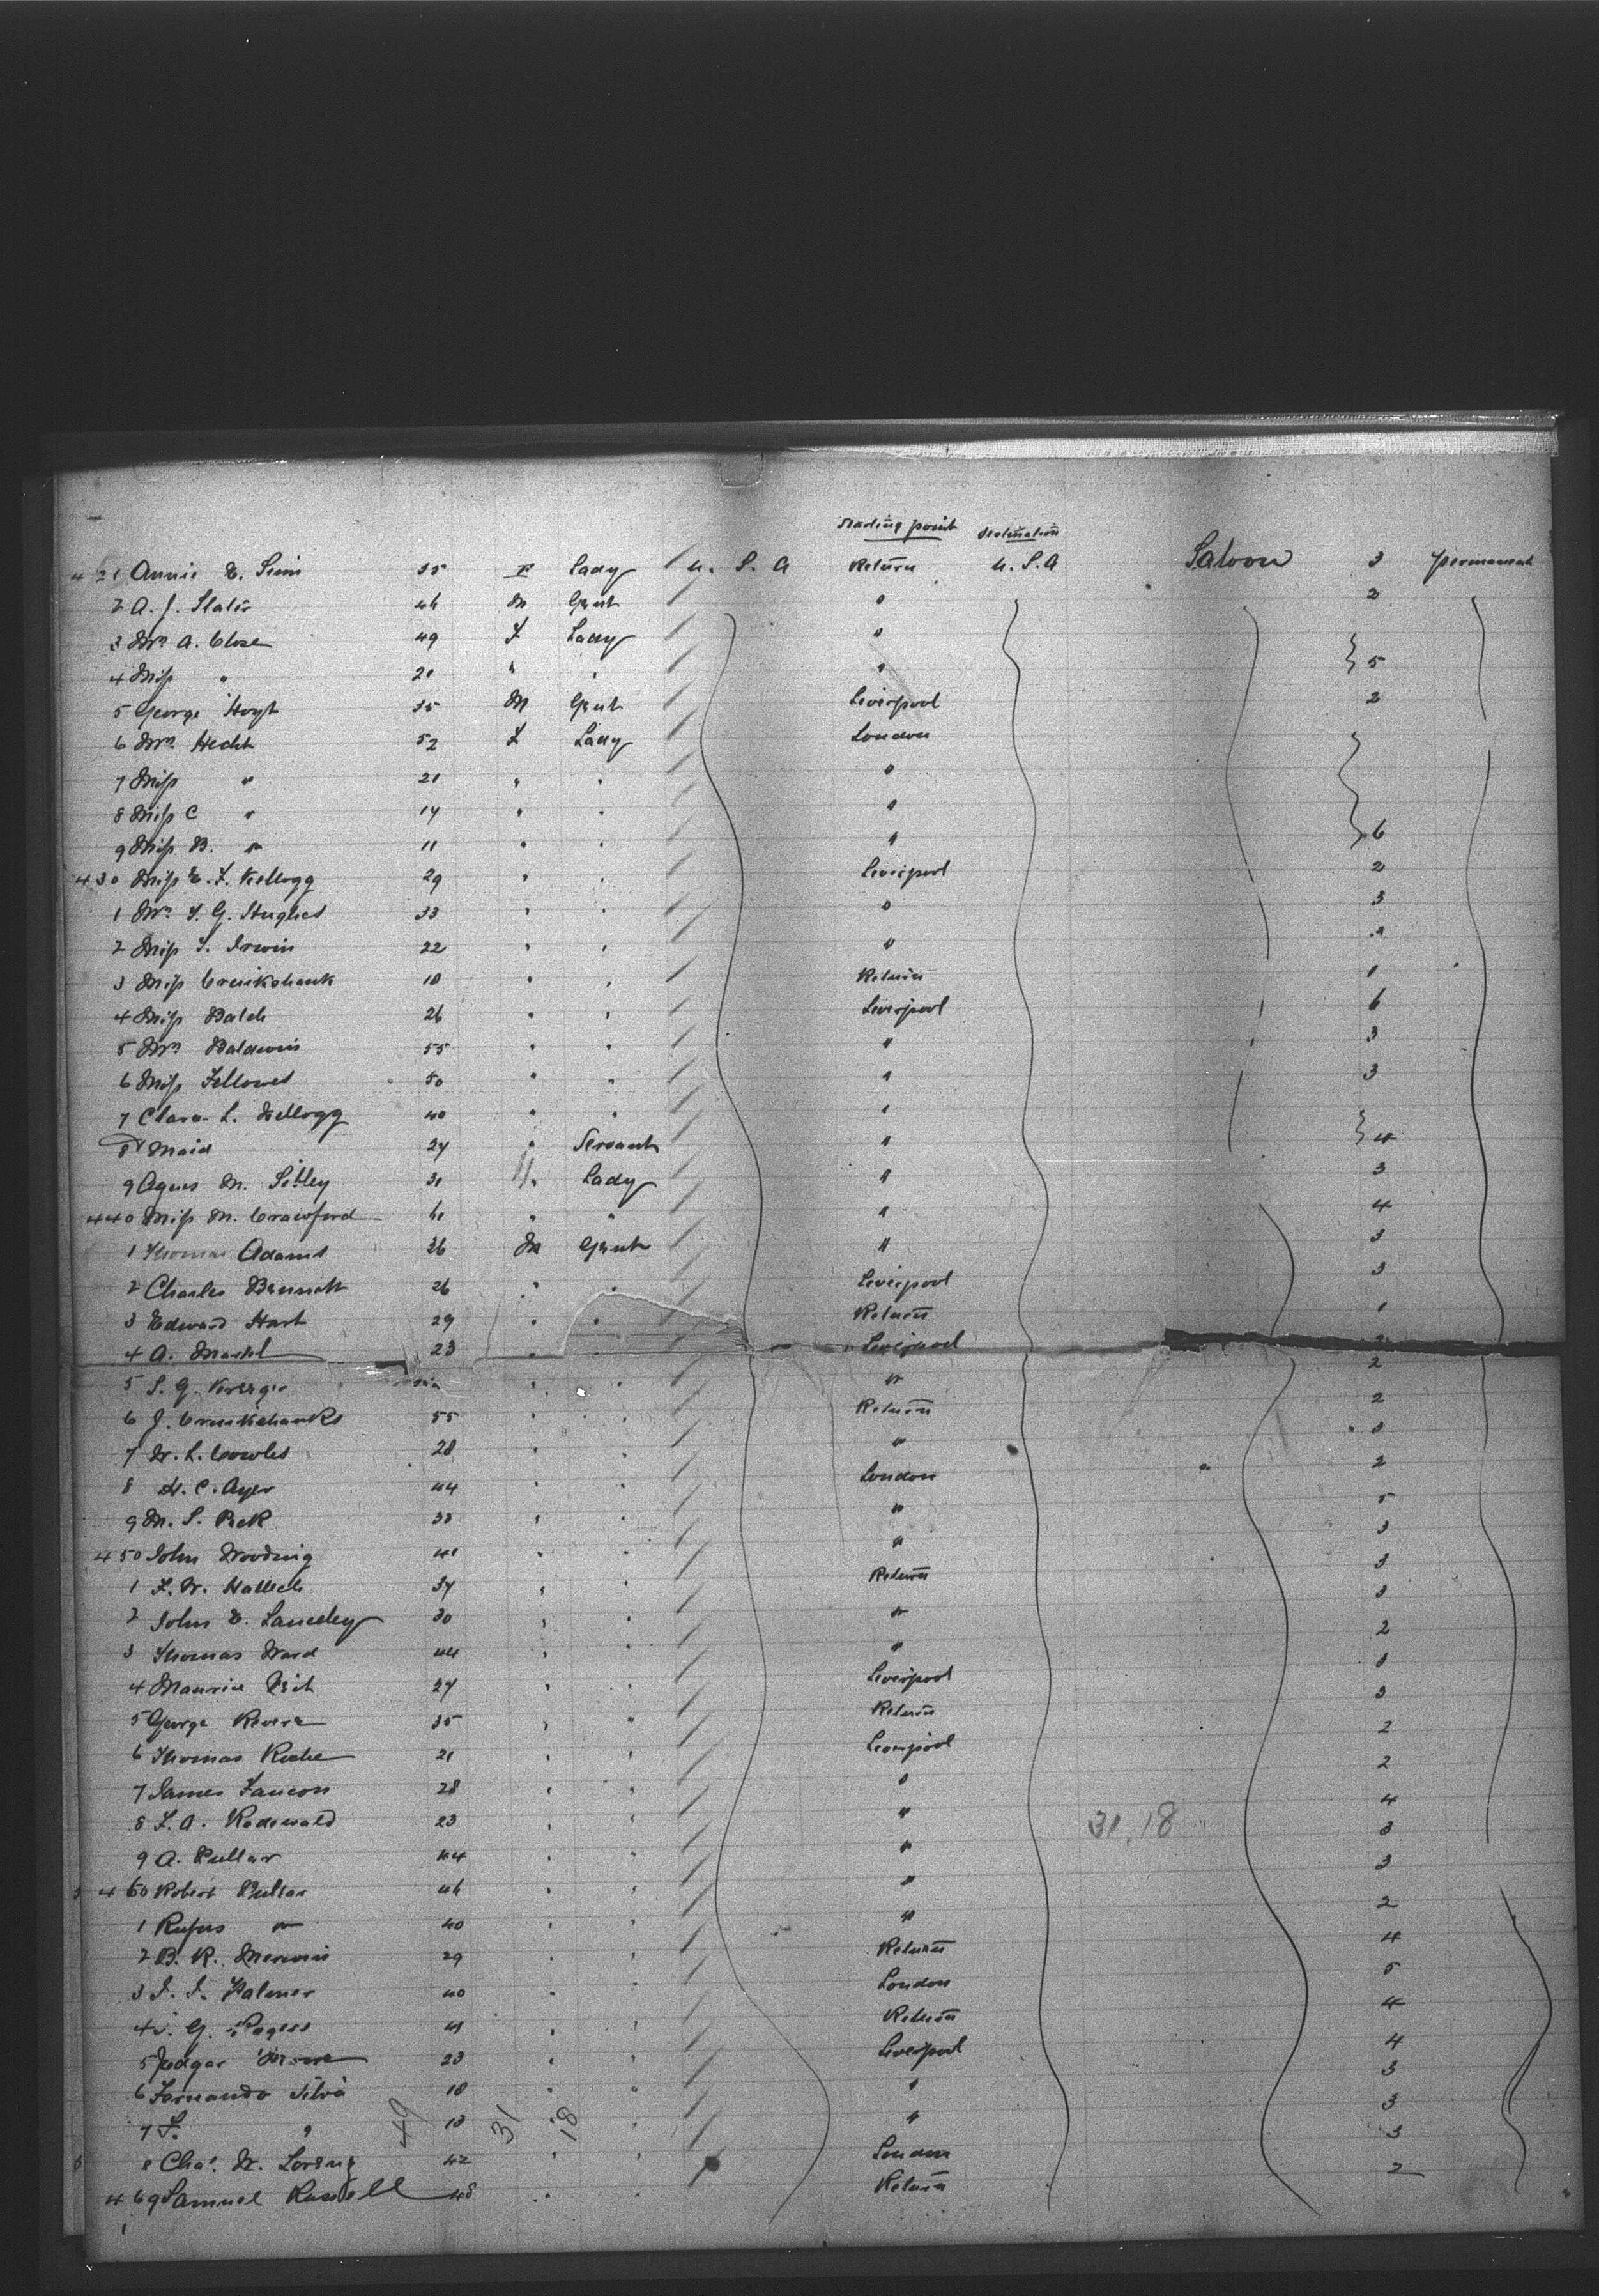 Starting point Destination
421 Annie E. Simi 35 F Lady U. S. A Return U. S. A Saloon 3 permanent
2 A. J. Slater 46 M Gent " 2
3 Mrs A. Close 49 F Lady "
4 Miss " 21 " " " 5
5 George Hoyt 35 M Gent Liverpool 2
6 Mrs Hecht 52 F Lady London
7 Miss " 21 " " "
8 Miss C " 14 " " "
9 Miss B. " 11 " " " 6
430 Miss E. F. Kellogg 29 " " Liverpool 2
1 Mrs F. G. Hughes 33 " " " 3
2 Miss F. Irwin 22 " " "
3 Miss Cruikshank 18 " " Return 1
4 Miss Balch 26 " " Liverpool 6
5 Mrs Baldwin 55 " " " 3
6 Miss Fellowes 50 " " " 3
7 Clara L. Kellogg 40 " " "
8 Maid 27 " Servant " 4
9 Agnes M. Sibley 31 " Lady " 3
440 Miss M. Crawford 41 " " " 4
1 Thomas Adams 36 M Gent " 3
2 Charles Bennett 26 " " Liverpool 3
3 Edward Hart 29 " " Return 1
4 A. 23 " Liverpool
5 S. G. " " " 2
6 J. Cruikshanks 55 " " Return 2
7 W. L. Cowles 28 " " " 3
8 H. C. Ayer 44 " " London 2
9 M. S. Peck 33 " " " 5
450 John Wooding 41 " " " 3
1 F. W. 37 " Return 3
2 John E. Lanceley 30 " " " 3
3 Thomas Ward 44 " " " 2
4 Maurice 27 " " Liverpool 3
5 George Revere 35 " " Return 3
6 Thomas Roche 21 " " Liverpool 2
7 James Faucon 28 " " " 2
8 F. A. Rodewald 23 " " " 31.18 4
9 A. Pullar 44 " " " 3
460 Robert Pullar 46 " " " 3
1 Rufus " 40 " " " 2
2 B. R. Merwin 29 " " Return 4
3 J. J. Palmer 40 " " London 5
4 G. 41 " " Return 4
5 Edgar 23 " " Liverpool 4
6 Fernando Silva 18 " " " 3
7 F. " 49 13 31 " 18 " " 3
8 Chas. W. Loring 42 " " London 3
469 Samuel Russell 48 " " Return 2